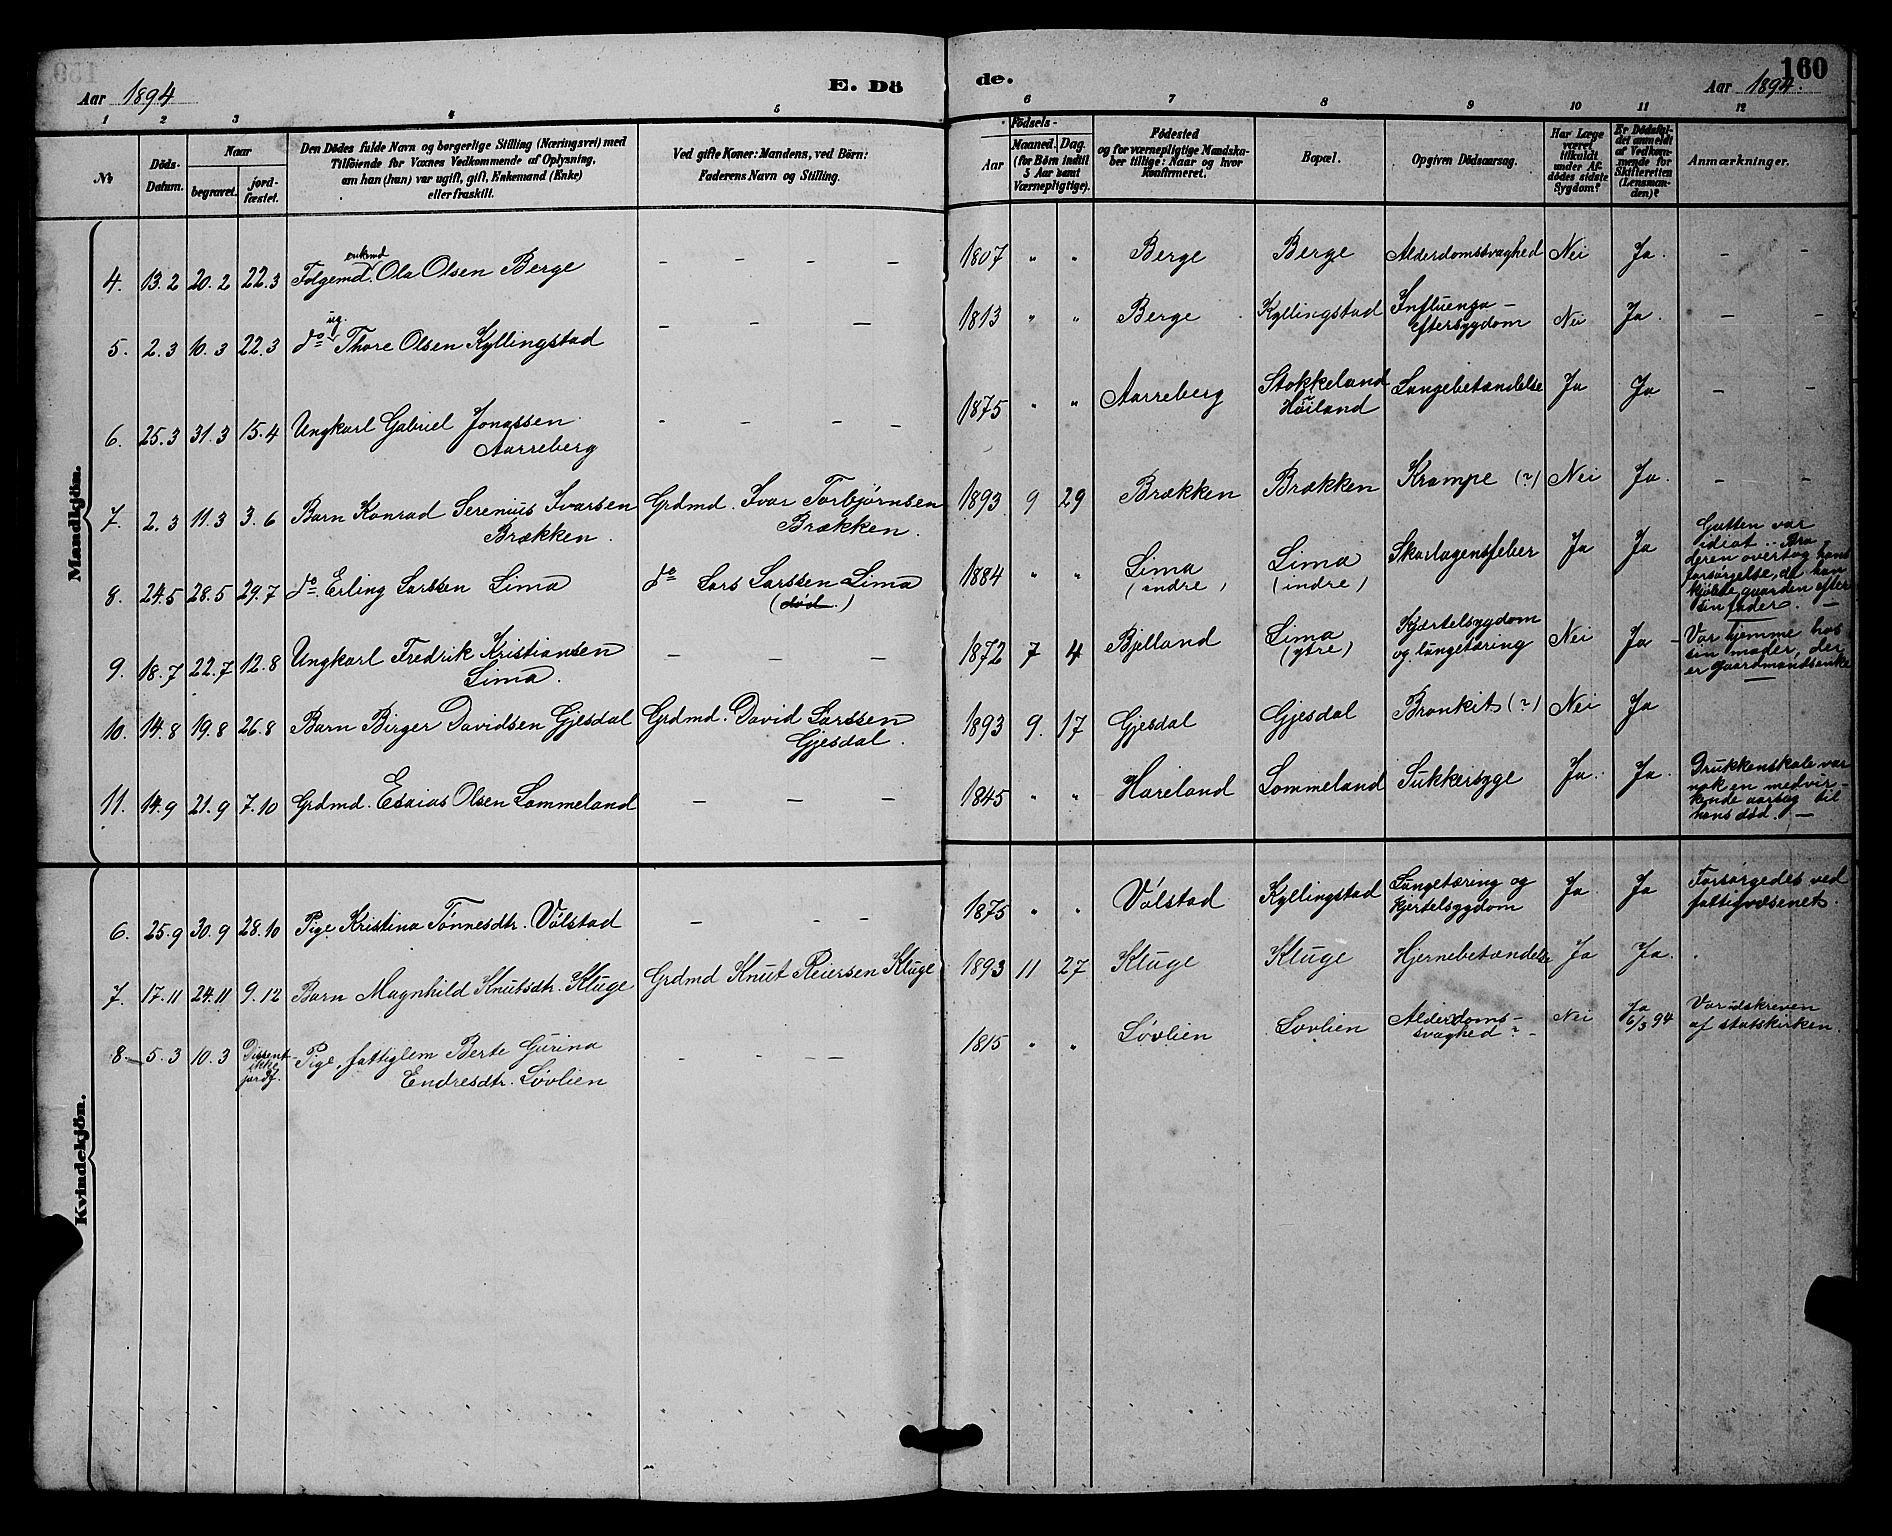 160
Aar 1894
E. Dö
de.
Aar 1894.
1 2 3 4 5 6 7 8 9 10 11 12
№
Döds-Datum.
Naar
begravet.
jord-fæstet.
Den Dödes fulde Navn og borgerlige Stilling (Næringsvei) med
Tilföiende for Voxnes Vedkommende af Oplysning,
om han (hun) var ugift, gift, Enkemand (Enke)
eller fraskilt.
Ved gifte Koner: Mandens, ved Börn:
Faderens Navn og Stilling.
Födsels-
Aar
Maaned. Dag.
(for Börn indtil
5 Aar samt
Værnepligtige).
Födested
og for værnepligtige Mandska-
ber tillige: Naar og hvor
Konfirmeret.
Bopæl.
Opgiven Dödsaarsag.
Har Læge
været
tilkaldt
under Af-
dödes sidste
Sygdom?
Er Dödsfal-
det anmeldt
af Vedkom-
mende for
Skifteretten
(Lensman-
den)?
Anmærkninger.
Mandkjön.
enkmd
4. 13.2 20.2 22.3 Folgemd. Ola Olsen Berge – – – – 1807 " " Berge Berge Alderdomssvaghed Nei Ja. – –
ug.
5. 2.3 10.3 22.3 do Thore Olsen Kyllingstad – – – 1813 " " Berge Kyllingstad Influenza – Eftersygdom Nei Ja. – –
6. 25.3 31.3 15.4 Ungkarl Gabriel Jonassen
Aarreberg – – – – 1875 " " Aarreberg Stokkeland Høiland Lungebetændelse Ja Ja – –
7. 2.3 11.3 3.6 Barn Konrad Serenius Ivarsen
Brækken. Grdmd. Ivar Torbjørnsen
Brækken. 1893 9 29 Brækken Brækken Krampe (?) Nei Ja. – –
8. 24.5 28.5 29.7 do. Erling Larssen Lima do Lars Larssen Lima
(død.) 1884 " " Lima
(indre) Lima
(indre) Skarlagensfeber Ja Ja
Gutten var
idiot. Bro
deren overtog hans
forsørgelse, da han
kjøbte gaarden efter
sin fader. –
9. 18.7 22.7 12.8 Ungkarl Fredrik Kristiansen
Lima. – – – 1872 7 4 Bjelland Lima
(ytre) Kjertelsygdom
og lungetæring Nei Ja –
Var hjemme hos
sin moder, der
er gaardmandsenke
10. 14.8 19.8 26.8 Barn Birger Davidsen Gjesdal Grdmd. David Larssen
Gjesdal. 1893 9. 17 Gjesdal Gjesdal Bronkit (?) Nei Ja
11. 14.9 21.9 7.10 Grdmd. Esaias Olsen Lommeland – – – 1845 " " Hareland Lommeland Sukkersyge Ja. Ja.
Drukkenskab var
nok en medvir-
kende aarsag til
hans død. –
Kvindekjön.
6. 25.9 30.9 28.10 Pige Kristina Tønnesdtr. Vølstad – – – 1875 " " Vølstad Kyllingstad Lungetæring og
kjertelsygdom Ja Ja
Forsørgedes ved
fattigvæsenet.
7. 17.11 24.11 9.12 Barn Magnhild Knutsdtr. Kluge Grdmd Knut Reiersen Kluge 1893 11 27 Kluge Kluge Hjernebetændelse Ja Ja.
8. 5.3 10.3 Dissent
ikke
jordf. Pige, fattiglem Berte Gurina
Endresdtr. Løvlien – – – – 1815 " " Løvlien Løvlien Alderdoms-
svaghed ? Nei Ja
6/3 94
Var udskreven
af statskirken.